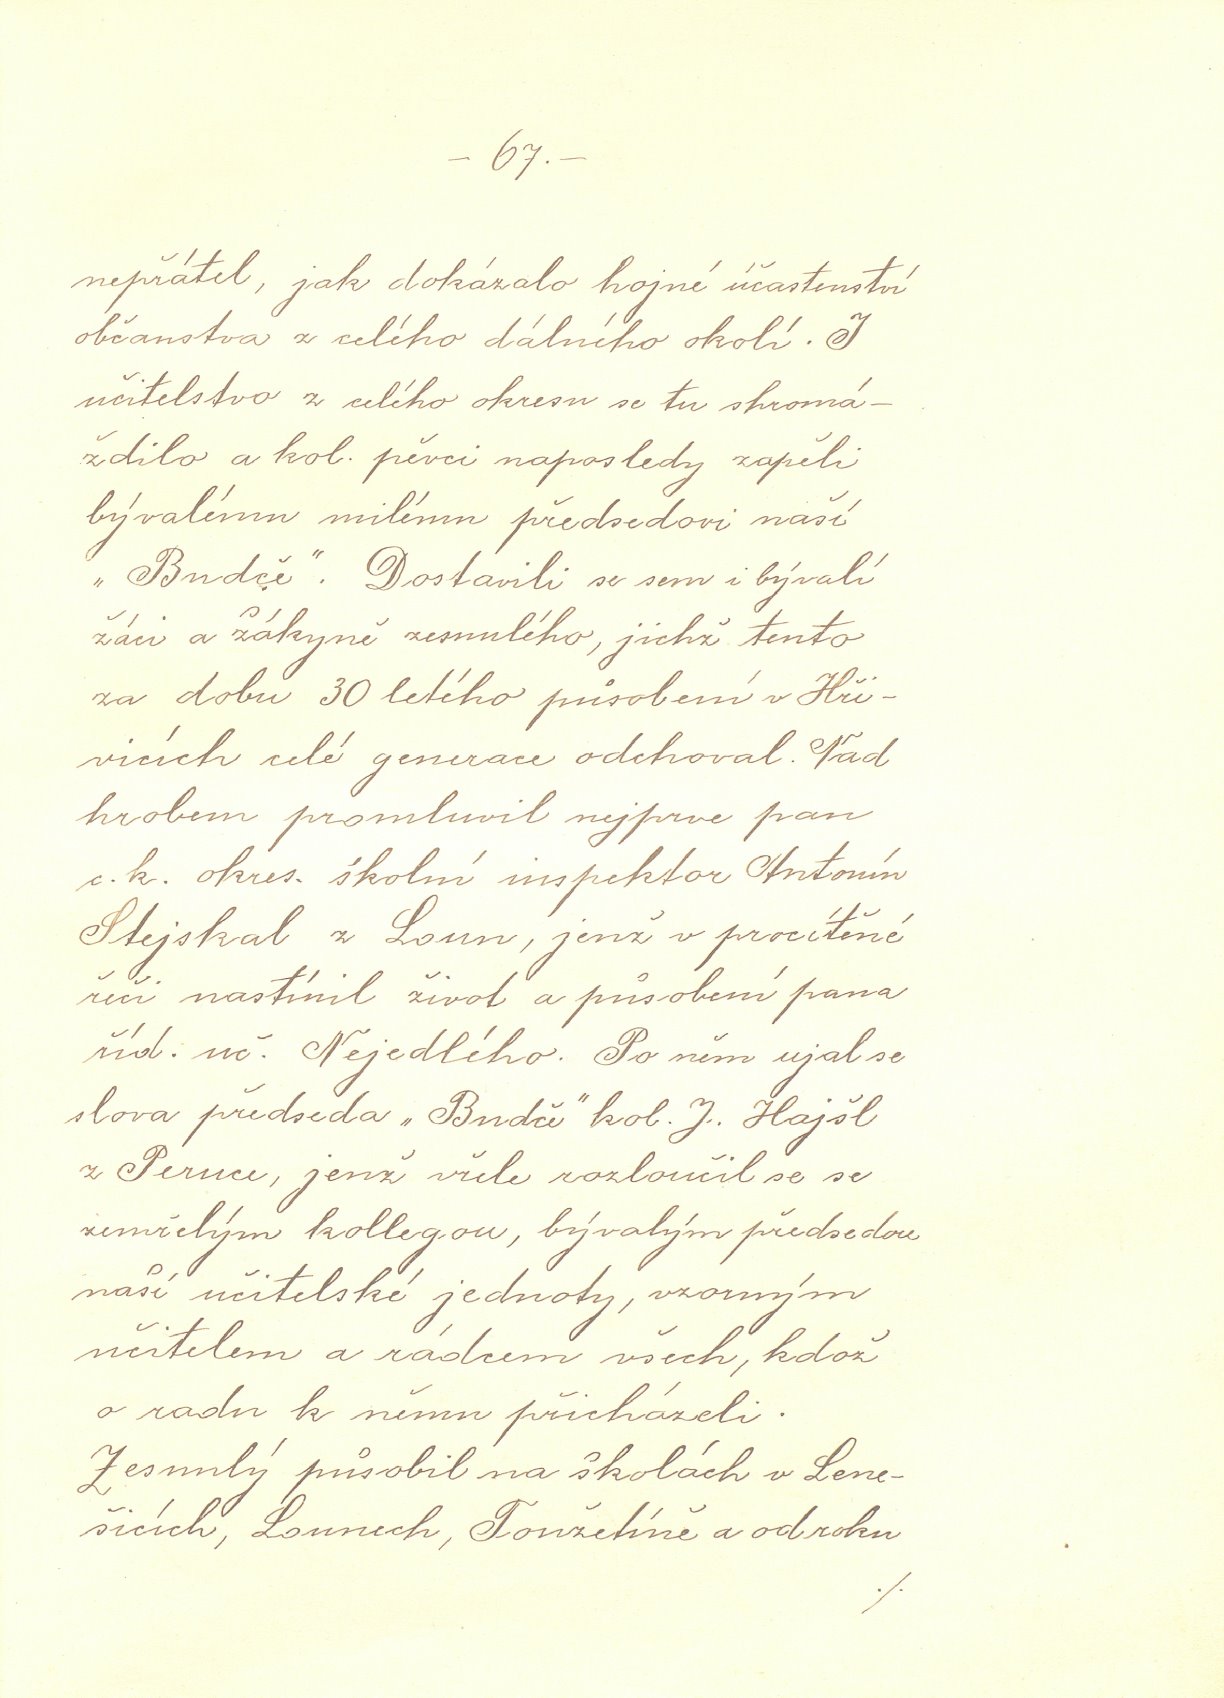 - 67. -
nepřátel, jak dokázalo hojné účastenství
občanstva z celého dálného okolí. I
učitelstvo z celého okresu se tu shromá-
ždilo a kol. pěvci naposledy zapěli
bývalému milému předsedovi naší
„Budče“. Dostavili se sem i bývalí
žáci a žákyně zesnulého, jichž tento
za dobu 30 letého působení v Hři-
vicích celé generace odchoval. Nad
hrobem promluvil nejprve pan
c. k. okres. školní inspektor Antonín
Stejskal z Loun, jenž v procítěné
řeči nastínil život a působení pana
říd. uč. Nejedlého. Po něm ujal se
slova předseda „Budče“ kol. J. Hajšl
z Peruce, jenž vřele rozloučil se se
zemřelým kollegou, bývalým předsedou
naší učitelské jednoty, vzorným
učitelem a rádcem všech, kdož
o radu k němu přicházeli.
Zesnulý působil na školách v Lene-
šicích, Lounech, Toužetíně a od roku
./.